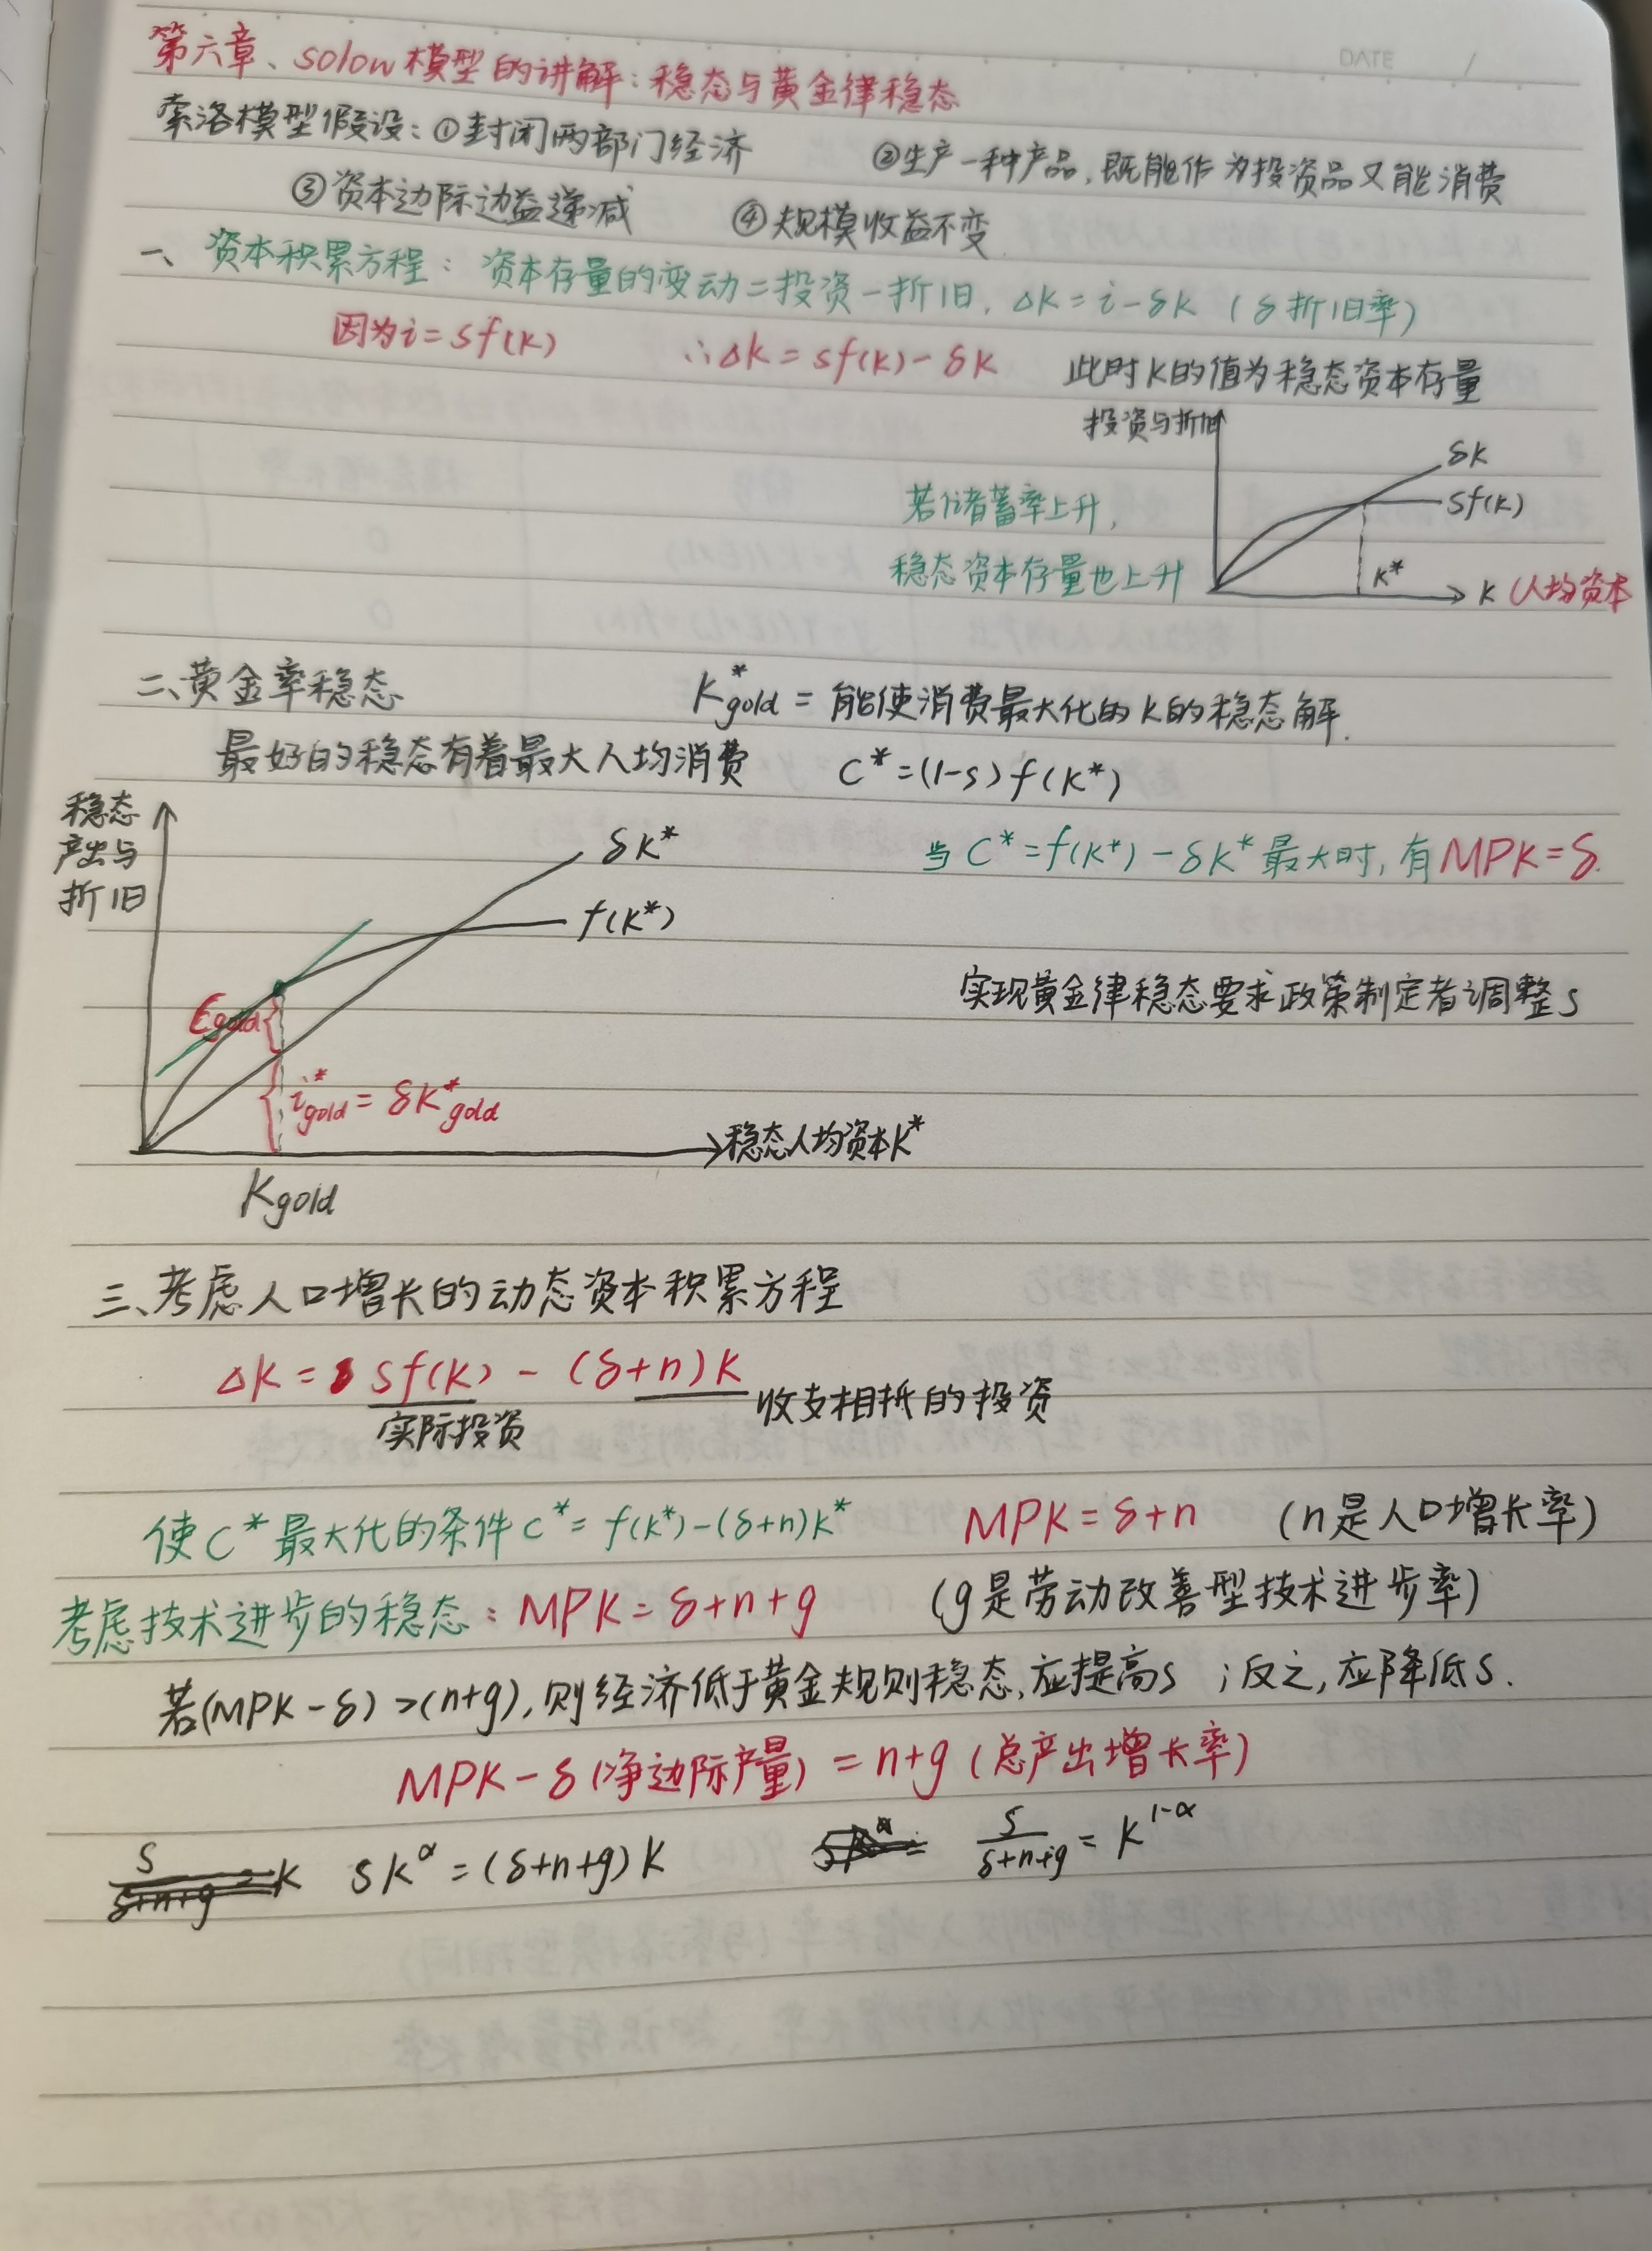 DATE /
第六章、solow模型的讲解：稳态与黄金律稳态
索洛模型假设：①封闭两部门经济 ②生产一种产品，既能作为投资品又能消费
③资本边际边益递减 ④规模收益不变
一、资本积累方程：资本存量的变动=投资-折旧，Δk=i-δk（δ折旧率）
因为i=sf(k) ∴Δk=sf(k)-δk 此时k的值为稳态资本存量
投资与折旧
δk
若储蓄率上升， sf(k)
稳态资本存量也上升 k* k（人均资本
二、黄金率稳态 k*gold=能使消费最大化的k的稳态解.
最好的稳态有着最大人均消费 C*=(1-s)f(k*)
稳态
产出与 δk* 当C*=f(k*)-δk*最大时，有MPK=δ.
折旧 f(k*)
实现黄金律稳态要求政策制定者调整s
gold
i*gold=δk*gold
稳态人均资本k*
kgold
三、考虑人口增长的动态资本积累方程
Δk= sf(k)-(δ+n)k
实际投资 收支相抵的投资
使C*最大化的条件C*=f(k*)-(δ+n)k* MPK=δ+n （n是人口增长率）
考虑技术进步的稳态：MPK=δ+n+g （g是劳动改善型技术进步率）
若(MPK-δ)>(n+g)，则经济低于黄金规则稳态，应提高s；反之，应降低s.
MPK-δ(净边际产量)=n+g（总产出增长率）
s/δ+n+g=k sk^α=(δ+n+g)k s/δ+n+g=k^1-α